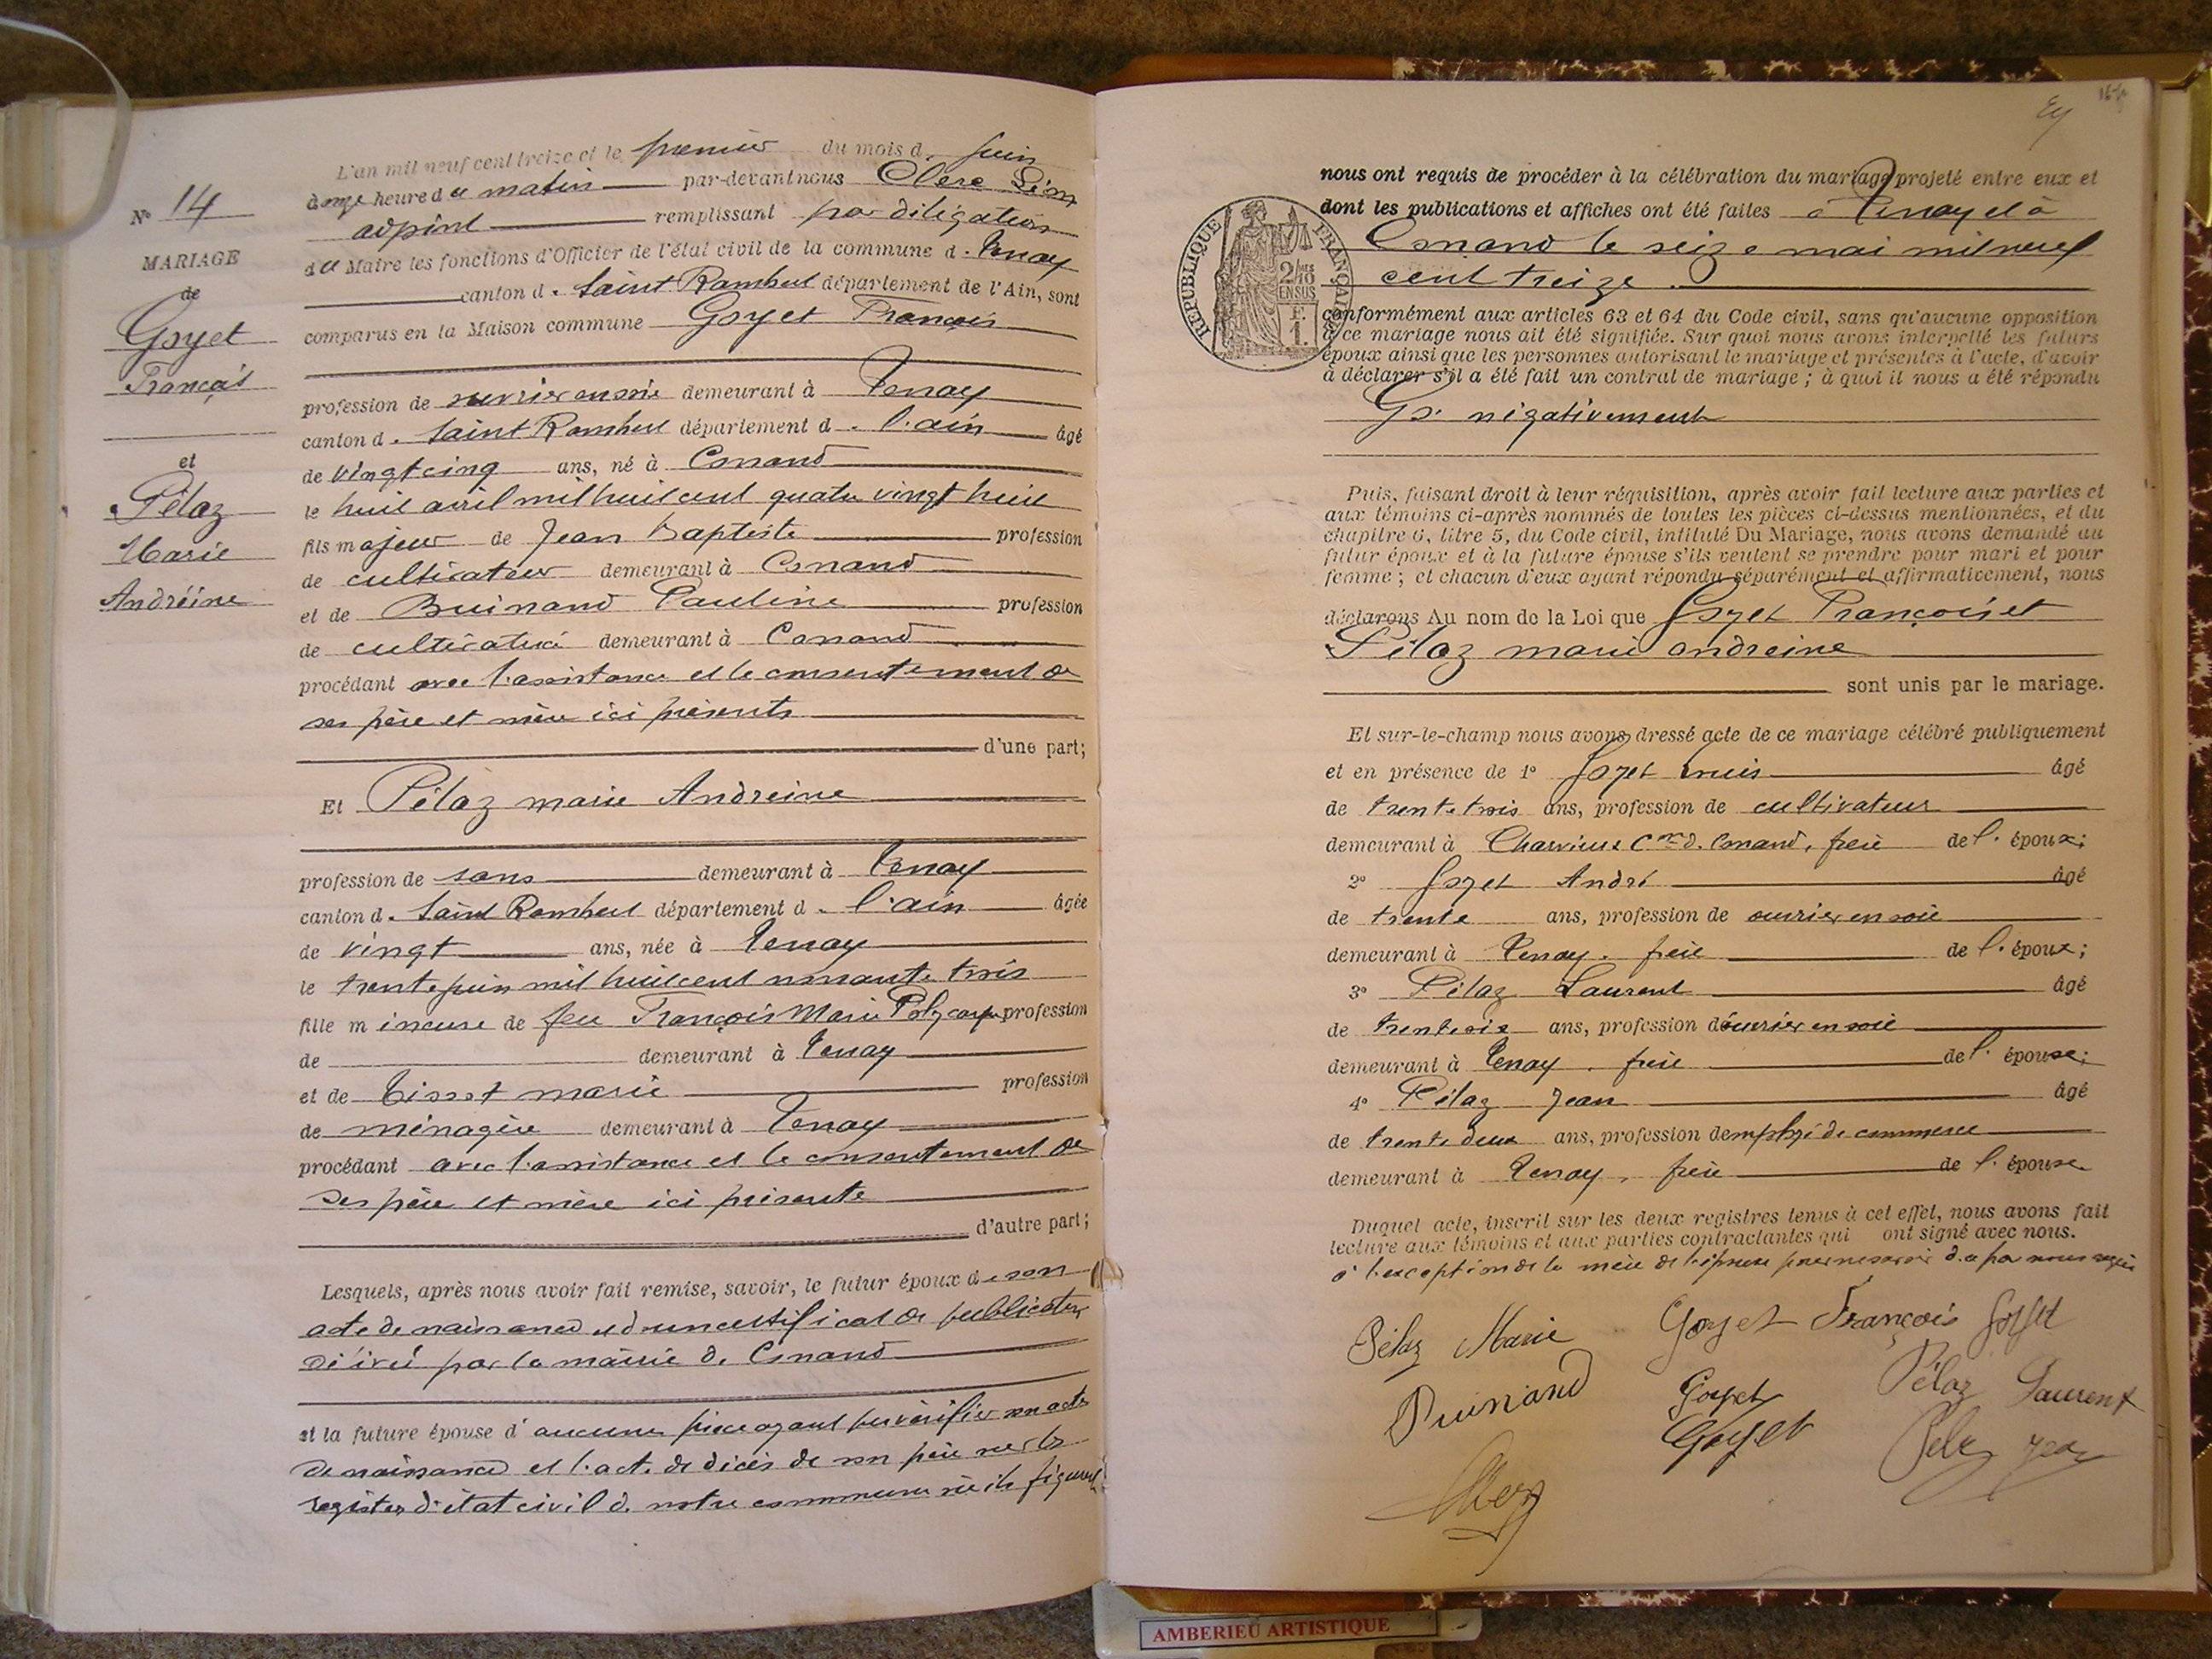 N° 14
MARIAGE
de
Goyet
François
et
Pélaz
Marie
Andréine
L'an mil neuf cent treize et le premier du mois d. juin
à onze heure du matin par-devant nous Clerc Léon
adjoint remplissant par délégation
du Maire les fonctions d'Officier de l'état civil de la commune d. Tenay
canton d. Saint Rambert département de l'Ain, sont
comparus en la Maison commune Goyet François
profession de ouvrier en soie demeurant à Tenay
canton d. Saint Rambert département d. l'ain âgé
de vingt cinq ans, né à Conand
le huit avril mil huit cent quatre vingt huit
fils majeur de Jean Baptiste profession
de cultivateur demeurant à Conand
et de Buinand Pauline profession
de cultivatrice demeurant à Conand
procédant avec l'assistance et le consentement de
ses père et mère ici présents
d'une part;
Et Pélaz marie Andreine
profession de sans demeurant à Tenay
canton d. Saint Rambert département d. l'ain âgée
de vingt ans, née à Tenay
le trente juin mil huit cent nonante trois
fille mineure de feu François Marie Polycarpe profession
de demeurant à Tenay
et de Tissot marie profession
de ménagère demeurant à Tenay
procédant avec l'assistance et le consentement de
ses père et mère ici présente
d'autre part;
Lesquels, après nous avoir fait remise, savoir, le futur époux de son
acte de naissance et d'un certificat de publication
délivré par la mairie d. Conand
et la future épouse d'aucune pièce ayant pu vérifier son acte
de naissance et l'acte de décès de son père sur les
registres d'état civil d. notre commune où ils figurent
nous ont requis de procéder à la célébration du mariage projeté entre eux et
dont les publications et affiches ont été faites à Tenay et à
Conand le seize mai mil neuf
cent treize.
RÉPUBLIQUE FRANÇAISE
2/10
EN SUS
F.
1.
conformément aux articles 63 et 64 du Code civil, sans qu'aucune opposition
à ce mariage nous ait été signifiée. Sur quoi nous avons interpellé les futurs
époux ainsi que les personnes autorisant le mariage et présentes à l'acte, d'avoir
à déclarer s'il a été fait un contrat de mariage; à quoi il nous a été répondu
négativement
Puis, faisant droit à leur réquisition, après avoir fait lecture aux parties et
aux témoins ci-après nommés de toutes les pièces ci-dessus mentionnées, et du
chapitre 6, titre 5, du Code civil, intitulé Du Mariage, nous avons demandé au
futur époux et à la future épouse s'ils veulent se prendre pour mari et pour
femme; et chacun d'eux ayant répondu séparément et affirmativement, nous
déclarons Au nom de la Loi que Goyet François et
Pélaz marie andreine
sont unis par le mariage.
Et sur-le-champ nous avons dressé acte de ce mariage célébré publiquement
et en présence de 1° Goyet Louis âgé
de trente trois ans, profession de cultivateur
demeurant à Charvieux Cne d. Conand, frère de l'époux;
2° Goyet André âgé
de trente ans, profession de ouvrier en soie
demeurant à Tenay. frère de l'époux;
3° Pélaz Laurent âgé
de trente six ans, profession d'ouvrier en soie
demeurant à Tenay. frère de l'épouse;
4° Pélaz Jean âgé
de trente deux ans, profession d'employé de commerce
demeurant à Tenay, frère de l'épouse
Duquel acte, inscrit sur les deux registres tenus à cet effet, nous avons fait
lecture aux témoins et aux parties contractantes qui ont signé avec nous.
à l'exception de la mère de l'épouse pour ne savoir d.e par nous requis
Pélaz Marie Goyet François Goyet
Buinand Goyet Pélaz Laurent
Goyet Pélaz Jean
AMBERIEU ARTISTIQUE